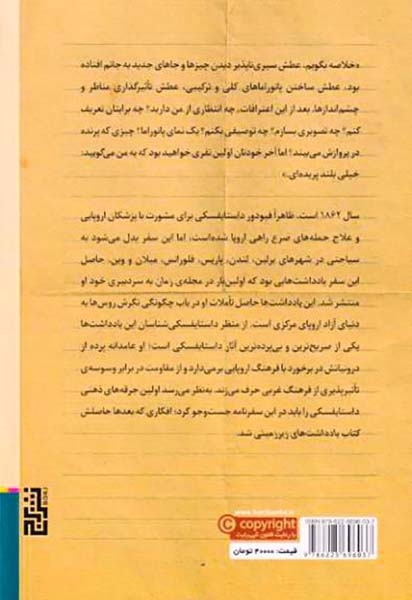 «خلاصه بگویم، عطش سیری‌ناپذیر دیدن چیزها و جاهای جدید به جانم افتاده
بود، عطش ساختن پانوراماهای کلی و ترکیبی، عطش تأثیرگذاری مناظر و
چشم‌اندازها. بعد از این اعترافات، چه انتظاری از من دارید؟ چه برایتان تعریف
کنم؟ چه تصویری بسازم؟ چه توصیفی بکنم؟ یک نمای پانوراما؟ چیزی که پرنده
در پروازش می‌بیند؟ اما آخر خودتان اولین نفری خواهید بود که به من می‌گویید:
خیلی بلند پریده‌ای.»
سال ۱۸۶۲ است. ظاهراً فیودور داستایفسکی برای مشورت با پزشکان اروپایی
و علاج حمله‌های صرع راهی اروپا شده‌است، اما این سفر بدل می‌شود به
سیاحتی در شهرهای برلین، لندن، پاریس، فلورانس، میلان و وین. حاصل
این سفر یادداشت‌هایی بود که اولین‌بار در مجله‌ی زمان به سردبیری خود او
منتشر شد. این یادداشت‌ها حاصل تأملات او در باب چگونگی نگرش روس‌ها به
دنیای آزاد اروپای مرکزی است. از منظر داستایفسکی‌شناسان این یادداشت‌ها
یکی از صریح‌ترین و بی‌پرده‌ترین آثار داستایفسکی است؛ او عامدانه پرده از
درونیاتش در برخورد با فرهنگ اروپایی برمی‌دارد و از مقاومت در برابر وسوسه‌ی
تأثیرپذیری از فرهنگ غربی حرف می‌زند. به‌نظر می‌رسد اولین جرقه‌های ذهنی
داستایفسکی را باید در این سفرنامه جست‌وجو کرد؛ افکاری که بعدها حاصلش
کتاب یادداشت‌های زیرزمینی شد.
© copyright
با رعایت قانون کپی‌رایت
قیمت: ۴۰۰۰۰ تومان
9 786225 696037